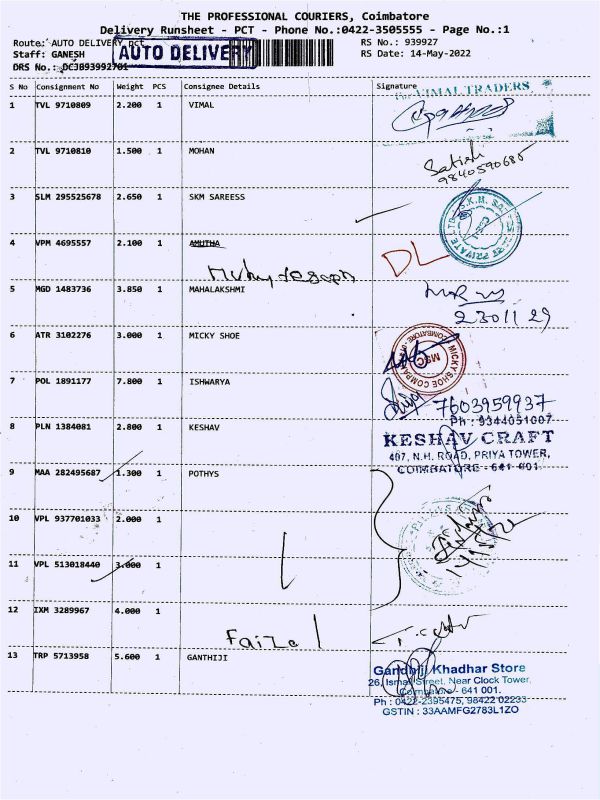 THE PROFESSIONAL COURIERS, Coimbatore
Delivery Runsheet - PCT - Phone No.:0422-3505555 - Page No.:1
Route: AUTO DELIVERY pct RS No.: 939927
Staff: GANESH AUTO DELIVERY RS Date: 14-May-2022
DRS No.:
S No Consignment No Weight PCS Consignee Details Signature
VIMAL TRADERS
1 TVL 9710809 2.200 1 VIMAL
2 TVL 9710810 1.500 1 MOHAN
Satish
9840590685
3 SLM 295525678 2.650 1 SKM SAREESS
4 VPM 4695557 2.100 1 AMUTHA
DL
5 MGD 1483736 3.850 1 MAHALAKSHMI
23011 29
6 ATR 3102276 3.000 1 MICKY SHOE
MICKY SHOE COMPANY
MSC
COIMBATORE
7 POL 1891177 7.800 1 ISHWARYA
7603959937
8 PLN 1384081 2.800 1 KESHAV
Ph : 9344051607
KESHAV CRAFT
407, N.H. ROAD, PRIYA TOWER,
COIMBATORE - 641 001
9 MAA 282495687 1.300 1 POTHYS
10 VPL 937701033 2.000 1
11 VPL 513018440 3.000 1
12 IXM 3289967 4.000 1
Faizal
13 TRP 5713958 5.600 1 GANTHIJI
Gandhiji Khadhar Store
26, Ismail Street, Near Clock Tower,
Coimbatore - 641 001.
Ph : 0422-2395475, 98422 02233
GSTIN : 33AAMFG2783L1ZO